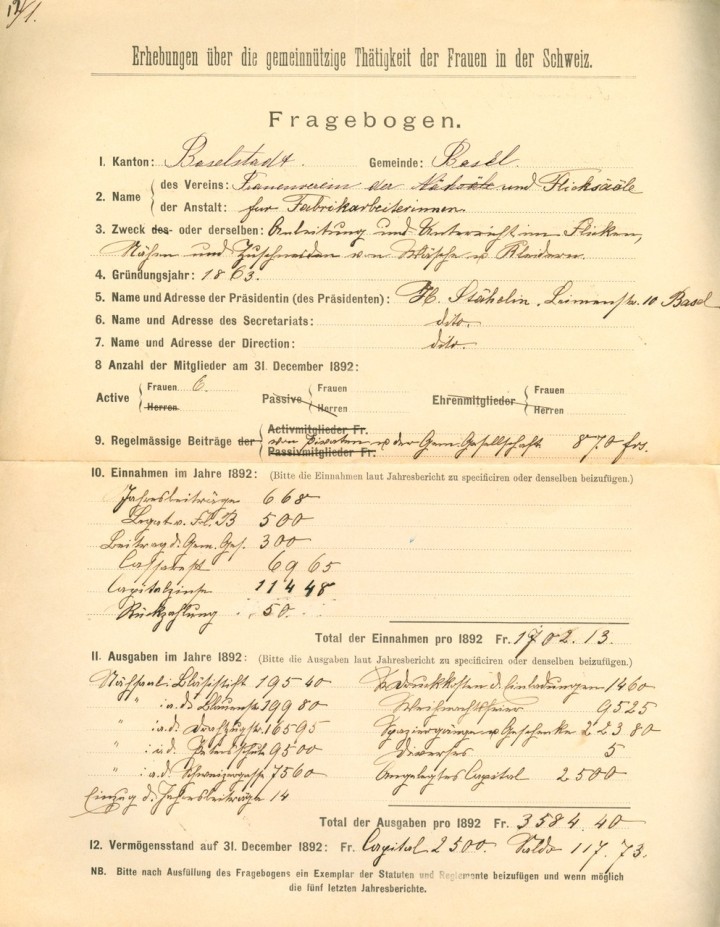 Erhebungen über die gemeinnützige Thätigkeit der Frauen in der Schweiz.
Fragebogen.
1. Kanton: Baselstadt. Gemeinde: Basel.
2. Name
des Vereins: Frauenverein der Nähsäle und Flicksääle
der Anstalt: für Fabrikarbeiterinnen.
3. Zweck des oder derselben: Anleitung und Unterricht im Flicken,
Nähen und Zuschneiden von Wäsche u Kleidern.
4. Gründungsjahr: 1863.
5. Name und Adresse der Präsidentin (des Präsidenten): H. Stähelin, Leimenstr. 10 Basel
6. Name und Adresse des Secretariats: dito.
7. Name und Adresse der Direction: dito.
8 Anzahl der Mitglieder am 31. December 1892:
Active Frauen 6. Herren Passive Frauen Herren Ehrenmitglieder Frauen Herren
9. Regelmässige Beiträge der
Activmitglieder Fr.
von Privaten u der Gem. Gesellschaft 870 frs.
Passivmitglieder Fr.
10. Einnahmen im Jahre 1892: (Bitte die Einnahmen laut Jahresbericht zu specificiren oder denselben beizufügen.)
Jahresbeiträge 668
Legat v. 500
Beitrag d. Gem. Ges. 300
69 65
Capitalzinse 114 48
Rückzahlung 50.
Total der Einnahmen pro 1892 Fr. 1702.13.
11. Ausgaben im Jahre 1892: (Bitte die Ausgaben laut Jahresbericht zu specificiren oder denselben beizufügen.)
195 40 Druckkosten d. Einladungen 14 60
" i. a. d. 199 80 Weihnachtsfeier 95 25
" i. a. d. 165 95 Spaziergänge u Geschenke 223 80
" i. d. 95 00 Diverses 5
" i. a. d. 75 60 Angelegtes Capital 2500
Einzug d. Jahresbeiträge 14
Total der Ausgaben pro 1892 Fr. 3584.40
12. Vermögensstand auf 31. December 1892: Fr. Capital 2500. Saldo 117.73.
NB. Bitte nach Ausfüllung des Fragebogens ein Exemplar der Statuten und Reglemente beizufügen und wenn möglich
die fünf letzten Jahresberichte.